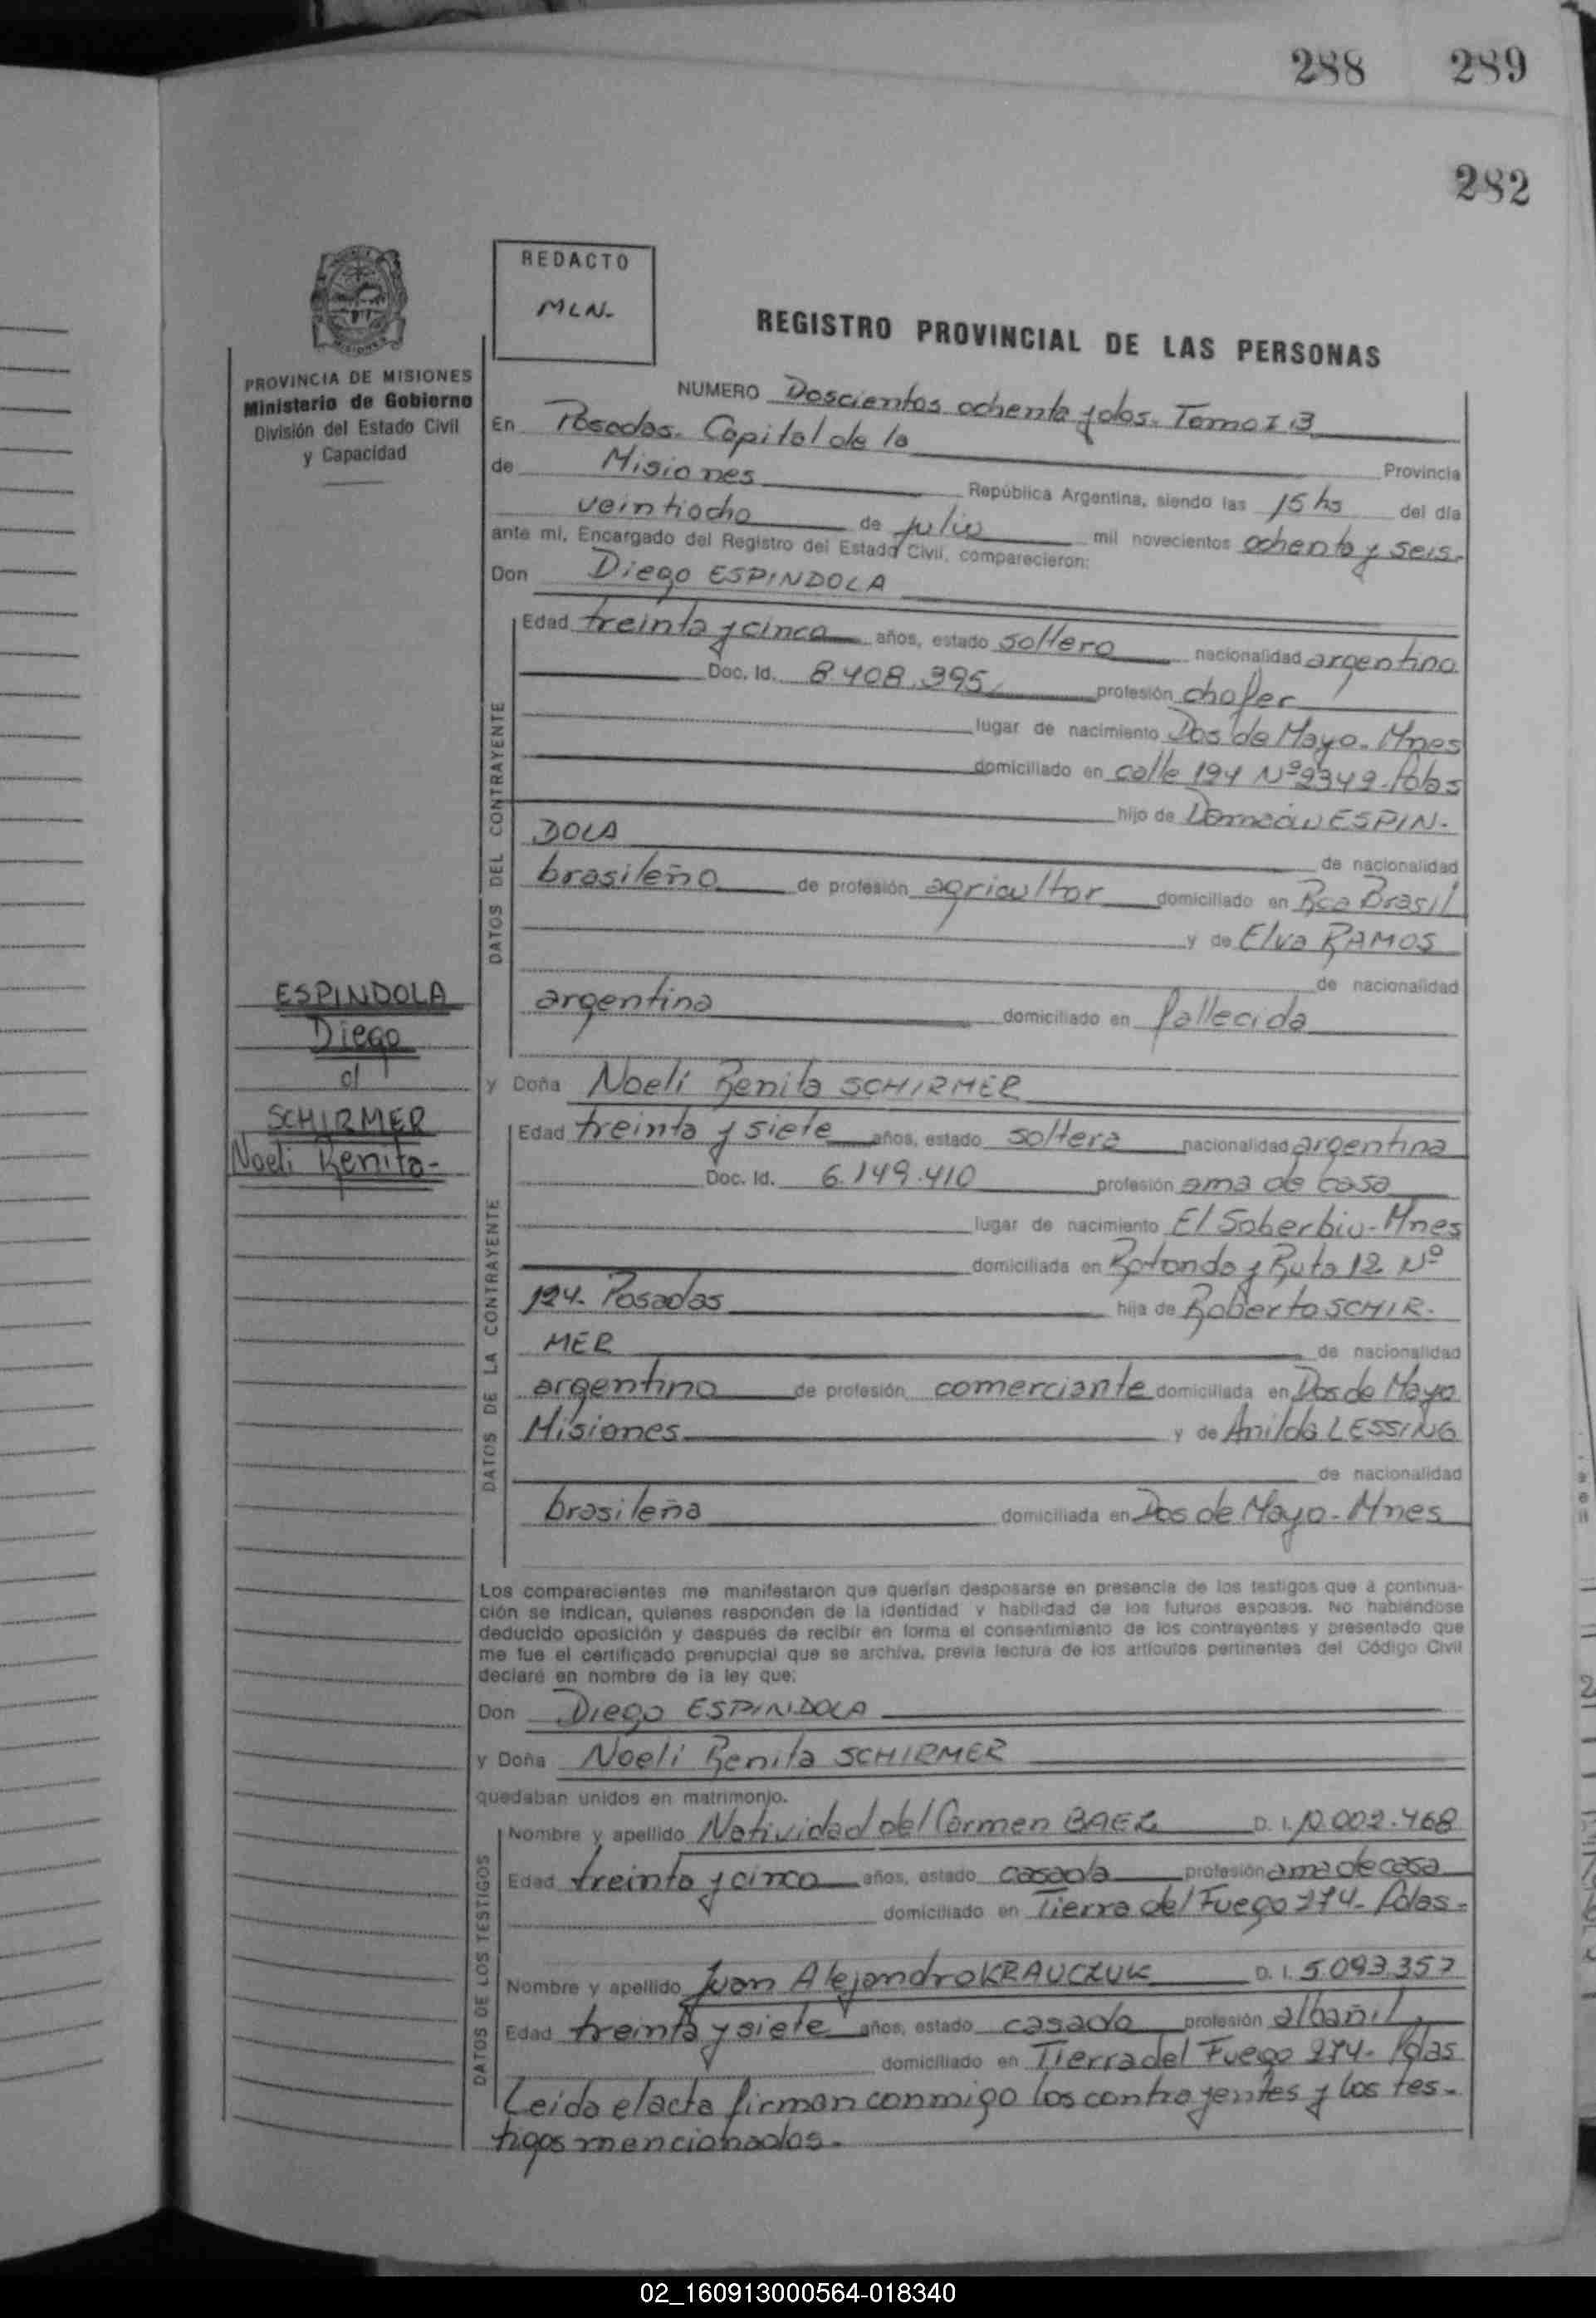 288 289
282
REDACTO
MLN-
REGISTRO PROVINCIAL DE LAS PERSONAS
PROVINCIA DE MISIONES
Ministerio de Gobierno
División del Estado Civil
y Capacidad
NUMERO Doscientos ochenta y dos. Tomo I 3
En Posadas. Capital de la Provincia
de Misiones República Argentina, siendo las 15 hs del día
veintiocho de julio mil novecientos ochenta y seis.
ante mi, Encargado del Registro del Estado Civil, comparecieron:
Don Diego ESPINDOLA
DATOS DEL CONTRAYENTE
Edad treinta y cinco años, estado soltero nacionalidad argentino
Doc. Id. 8.408.395 profesión chofer
lugar de nacimiento Dos de Mayo. Mnes
domiciliado en calle 194 Nº 2349-
hijo de Damián ESPIN-
DOLA de nacionalidad
brasileño de profesión agricultor domiciliado en Rca Brasil
y de Elva RAMOS
de nacionalidad
argentina domiciliado en fallecida
ESPINDOLA
Diego
c/
SCHIRMER
Noeli Renita-
y Doña Noelí Renita SCHIRMER
DATOS DE LA CONTRAYENTE
Edad treinta y siete años, estado soltera nacionalidad argentina
Doc. Id. 6.149.410 profesión ama de casa
lugar de nacimiento El Soberbio-Mnes
domiciliada en Rotonda y Ruta 12 Nº
124. Posadas hija de Roberto SCHIR-
MER de nacionalidad
argentino de profesión comerciante domiciliada en Dos de Mayo
Misiones y de Anilda LESSING
de nacionalidad
brasileña domiciliada en Dos de Mayo-Mnes
Los comparecientes me manifestaron que querían desposarse en presencia de los testigos que a continua-
ción se indican, quienes responden de la identidad y habilidad de los futuros esposos. No habiéndose
deducido oposición y después de recibir en forma el consentimiento de los contrayentes y presentado que
me fue el certificado prenupcial que se archiva, previa lectura de los artículos pertinentes del Código Civil
declaré en nombre de la ley que:
Don Diego ESPINDOLA
y Doña Noelí Renita SCHIRMER
quedaban unidos en matrimonio.
DATOS DE LOS TESTIGOS
Nombre y apellido Natividad del Carmen BAEZ D. I. 10.002.468
Edad treinta y cinco años, estado casada profesión ama de casa
domiciliado en Tierra del Fuego 274- Pdas-
Nombre y apellido Juan Alejandro KRAUCZUK D. I. 5.093.357
Edad treinta y siete años, estado casado profesión albañil,
domiciliado en Tierra del Fuego 274- Pdas
Leida el acta firman conmigo los contrayentes y los tes-
tigos mencionados-
02_160913000564-018340